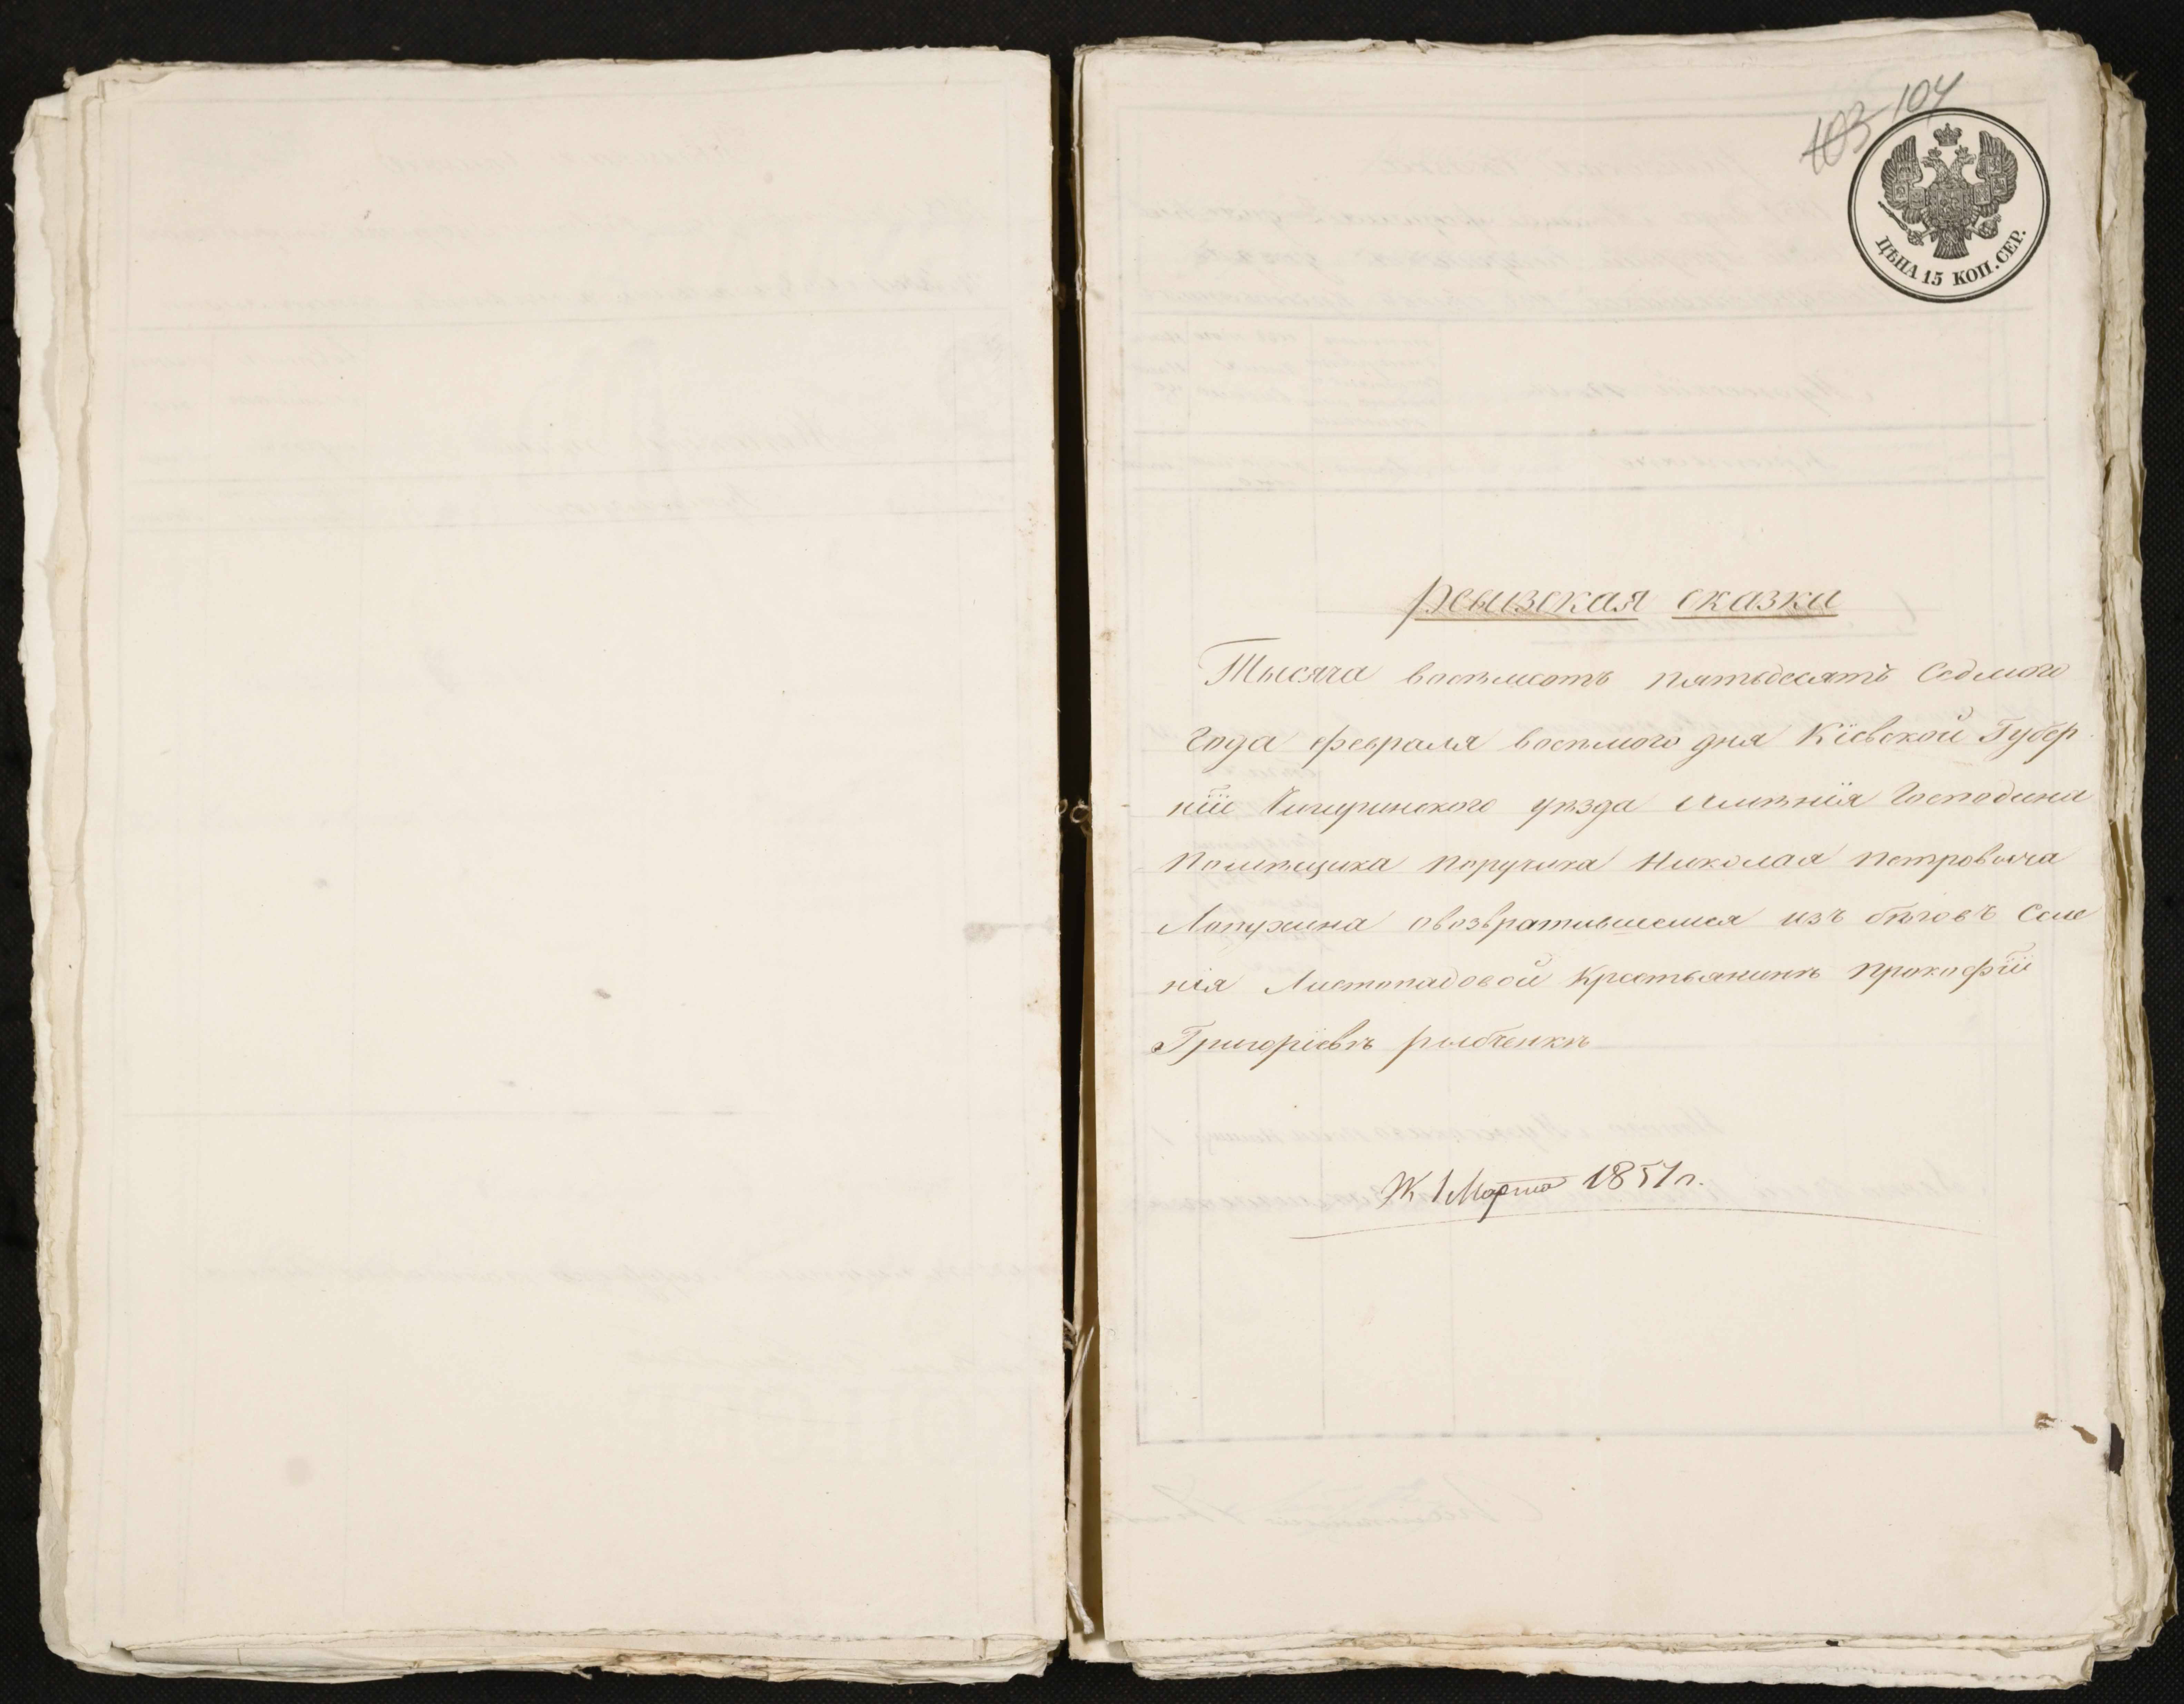 103 104
ЦѢНА 15 КОП. СЕР.
Ревизская сказки
Тысяча восемьсотъ пятьдесятъ Седмого
Года февраля восьмого дня Кіевской Губер
ніи Чигиринского уѣзда Имѣнія Господина
Помѣщика Поручика Николая Петровича
Лопухина овозвратившемся изъ бѣговъ Селе
нія Листопадовой Крестьянинѣ Прокофіи
Григоріевѣ рыбченкѣ
Марта 1857 г.